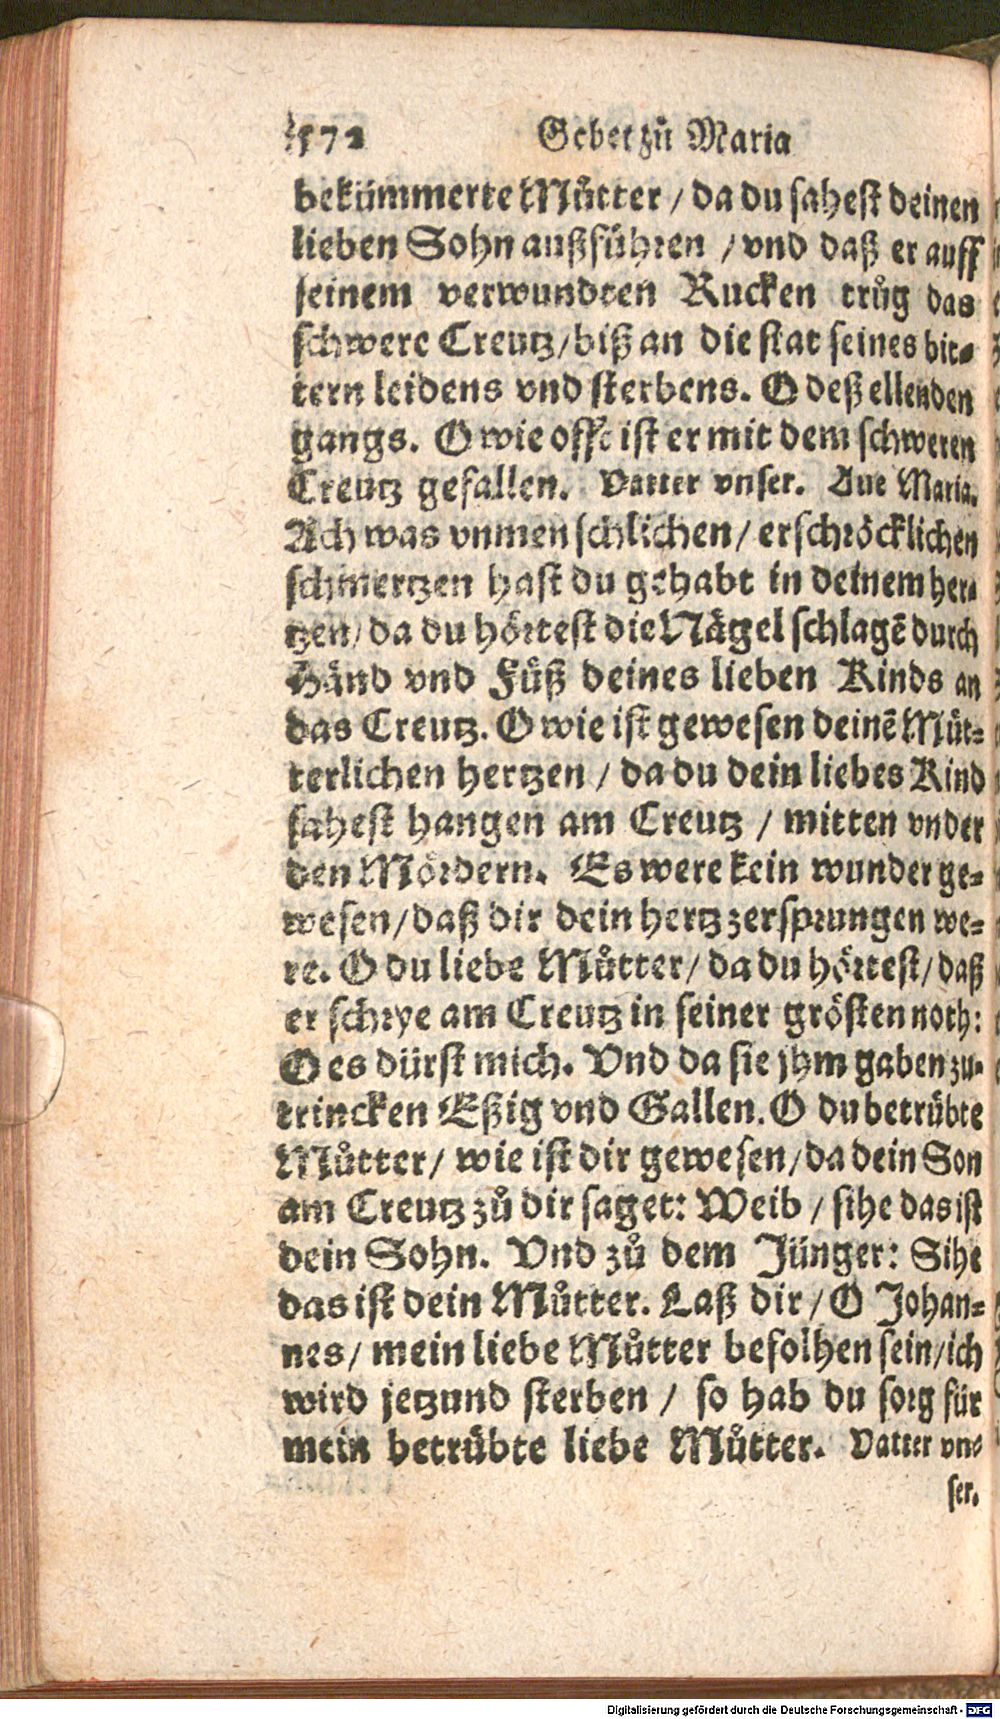 572 Gebet zů Maria
bekümmerte Můtter / da du sahest deinen
lieben Sohn außfůhren / vnd daß er auff
seinem verwundten Rucken trůg das
schwere Creutz / biß an die stat seines bit-
tern leidens vnd sterbens. O deß ellenden
gangs. O wie offt ist er mit dem schweren
Creutz gefallen. Vatter vnser. Aue Maria.
Ach was vnmenschlichen / erschröcklichen
schmertzen hast du gehabt in deinem her-
tzen / da du hörtest die Nägel schlagẽ durch
Händ vnd Füß deines lieben Kinds an
das Creutz. O wie ist gewesen deinẽ Můt-
terlichen hertzen / da du dein liebes Kind
sahest hangen am Creutz / mitten vnder
den Mördern. Es were kein wunder ge-
wesen / daß dir dein hertz zersprungen we-
re. O du liebe Můtter / da du hörtest / daß
er schrye am Creutz in seiner grösten noth:
O es dürst mich. Vnd da sie jhm gaben zu-
trincken Eßig vnd Gallen. O du betrübte
Můtter / wie ist dir gewesen / da dein Son
am Creutz zů dir saget: Weib / sihe das ist
dein Sohn. Vnd zů dem Jünger: Sihe
das ist dein Můtter. Laß dir / O Johan-
nes / mein liebe Můtter befolhen sein / ich
wird jetzund sterben / so hab du sorg für
mein betrübte liebe Můtter. Vatter vn-
ser.
Digitalisierung gefördert durch die Deutsche Forschungsgemeinschaft - DFG